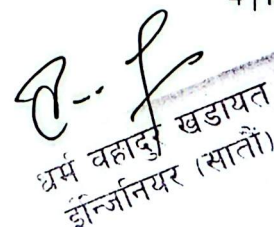 धर्म वहादुर खडायत
ईन्जिनियर (सातौं)